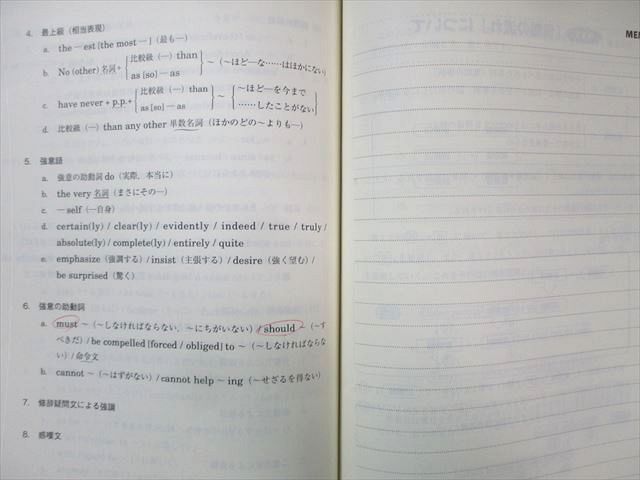 4. 最上級（相当表現）
a. the ─ est [the most ─]（最も─）
b. No (other) 名詞+{比較級（─）than / as [so] ─ as}～（～ほど─な……はほかにない）
c. have never + p.p.+{比較級（─）than / as [so] ─ as}～{～ほど─を今まで / ……したことがない}
d. 比較級（─）than any other 単数名詞（ほかのどの～よりも─）
5. 強意語
a. 強意の助動詞 do（実際，本当に）
b. the very 名詞（まさにその─）
c. ─ self（─自身）
d. certain(ly) / clear(ly) / evidently / indeed / true / truly /
absolute(ly) / complete(ly) / entirely / quite
e. emphasize（強調する）/ insist（主張する）/ desire（強く望む）/
be surprised（驚く）
6. 強意の助動詞
a. must ～（～しなければならない，～にちがいない）/ should ～（～す
べきだ）/ be compelled [forced / obliged] to ～（～しなければならな
い）/ 命令文
b. cannot ～（～はずがない）/ cannot help ～ ing（～せざるを得ない）
7. 修辞疑問文による強調
8. 感嘆文